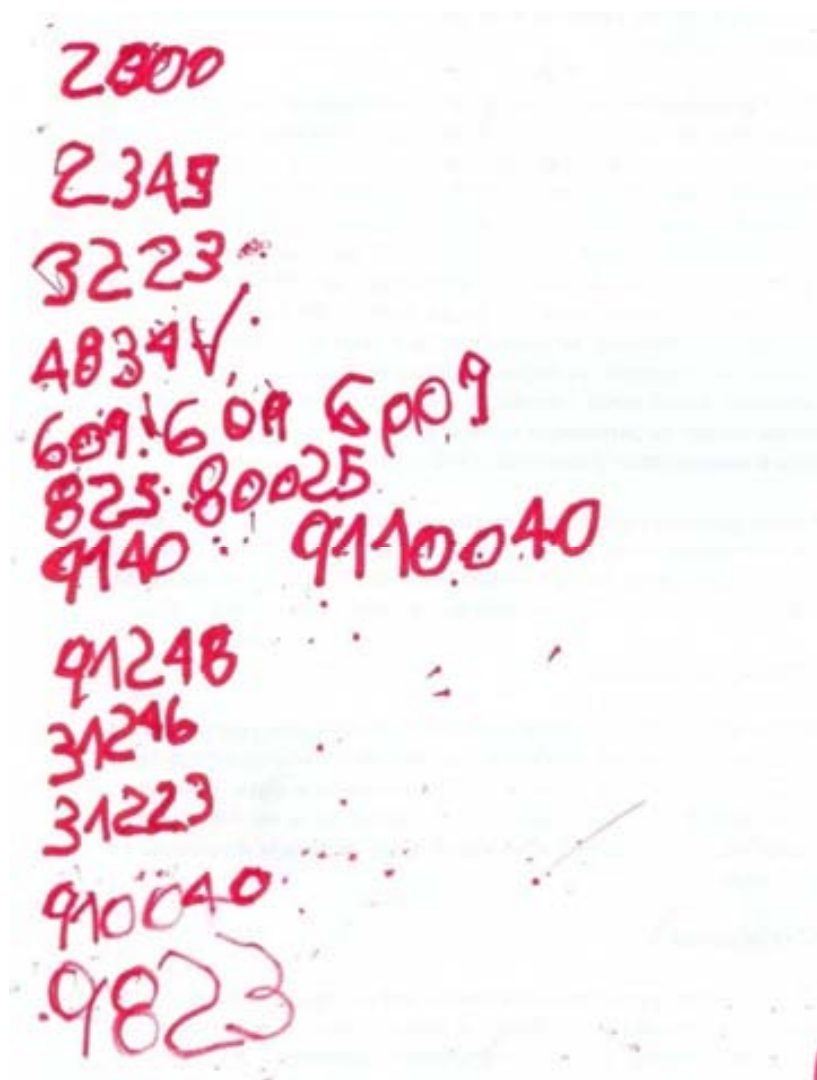 2800
2345
3223
4834 √
609 609 6009
825 80025
9140 9110040
91248
31246
31223
910040
9823